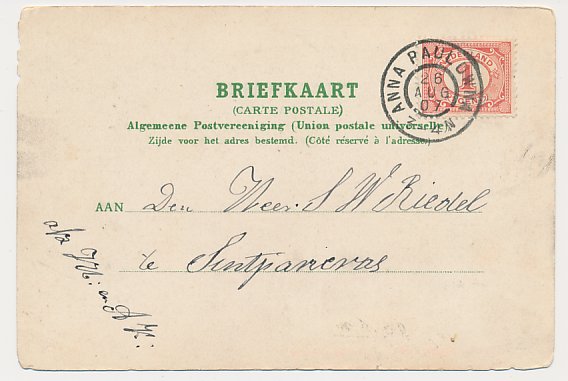 BRIEFKAART
(CARTE POSTALE)
Algemeene Postvereeniging (Union postale universelle)
Zijde voor het adres bestemd. (Côté réservé à l'adresse)
ANNA PAULOWNA
26
AUG
07
NEDERLAND
AAN Den Heer S W Riedel
te Sintpancras
afz